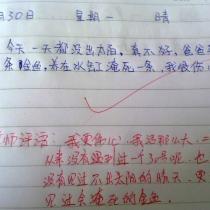 月30日 星期一 晴
今天一天都没出太阳,真不好,爸爸
条金鱼,养在水缸淹死一条,我很伤
师评语:我更伤心!我活那么大,
从来没有碰到过一个30号呢,也
没有见过不出太阳的晴天,更
见过会淹死的金鱼